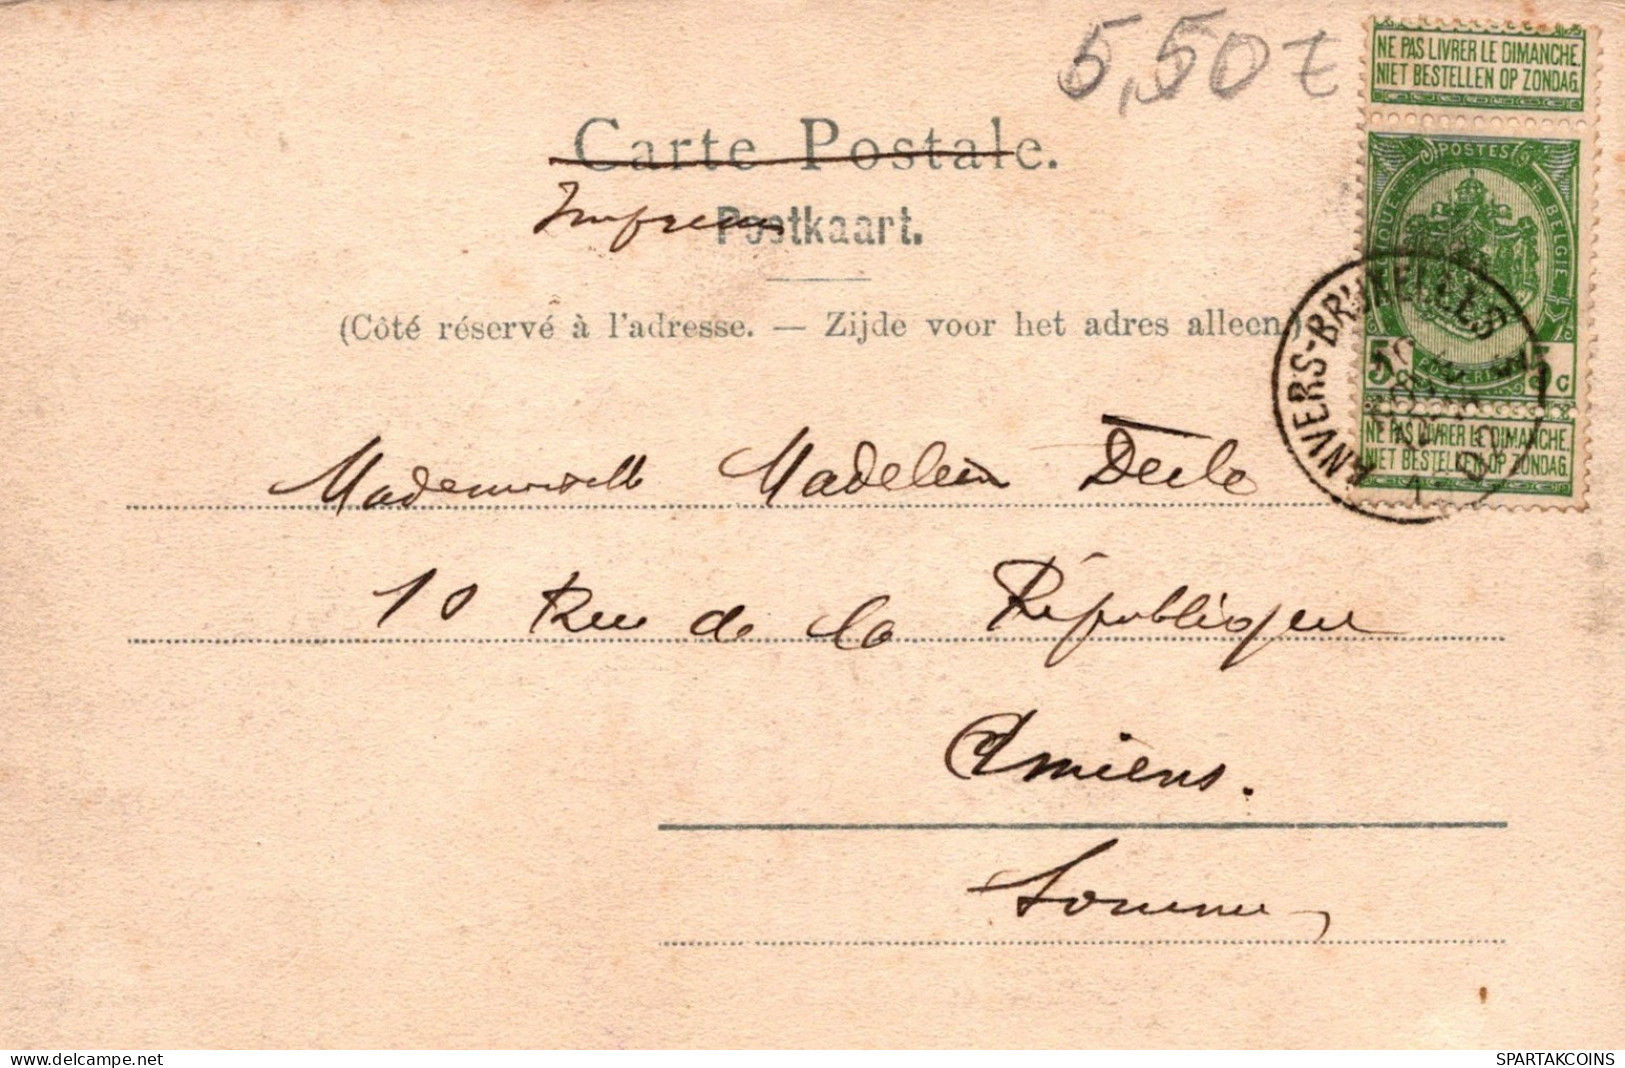 5,50 €
NE PAS LIVRER LE DIMANCHE.
NIET BESTELLEN OP ZONDAG.
Carte Postale.
Imprimé
Postkaart.
POSTES
BELGIQUE BELGIE
(Côté réservé à l'adresse. — Zijde voor het adres alleen.)
ANVERS-BRUXELLES
5 5 C
NE PAS LIVRER LE DIMANCHE.
NIET BESTELLEN OP ZONDAG.
Mademoiselle Madeleine
10 Rue de la République
Amiens.
Somme
delcampe.net
SPARTAKCOINS